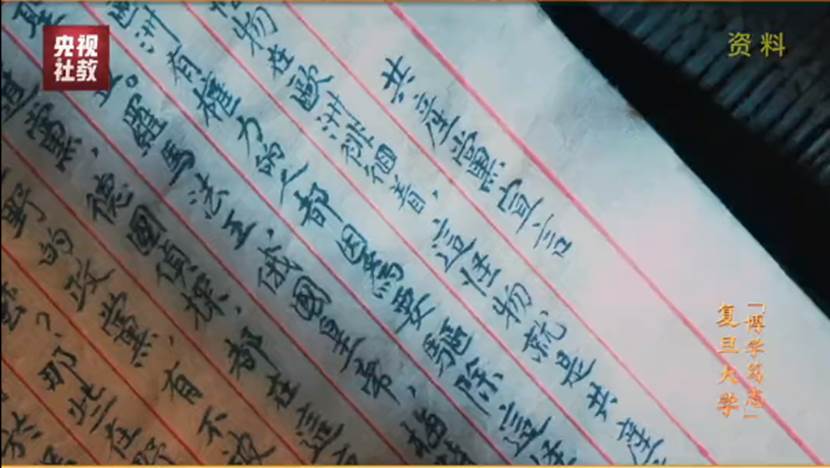 央视
社教
资料
共產黨宣言
物在歐洲徘徊着，這怪物就是共產
洲有權力的人都因爲要驅除這怪
。羅馬法王，俄國皇帝，梅
黨，德國偵探，都在這
野的政黨，有不被
？那些在野
於
「博学笃志」
复旦大学